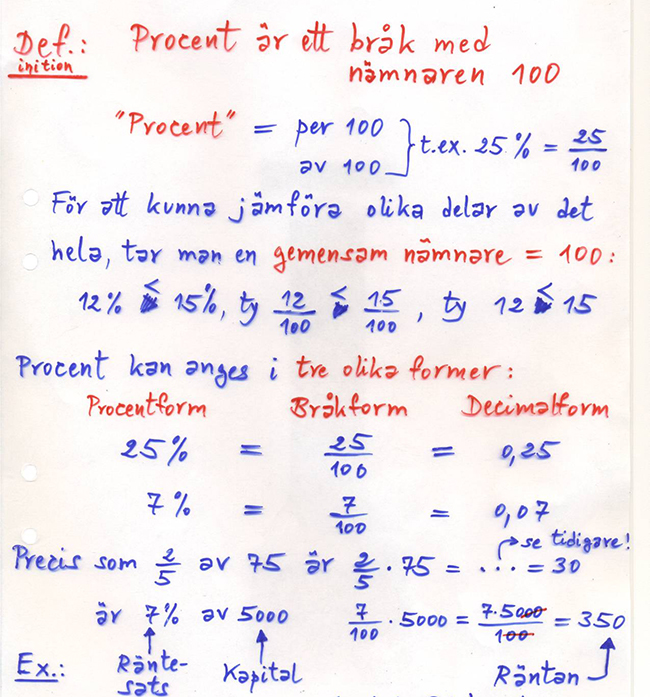 Def.: Procent är ett bråk med
inition nämnaren 100
"Procent" = per 100
av 100 } t.ex. 25 % = 25/100
För att kunna jämföra olika delar av det
hela, tar man en gemensam nämnare = 100:
12% < 15%, ty 12/100 < 15/100, ty 12 < 15
Procent kan anges i tre olika former:
Procentform Bråkform Decimalform
25% = 25/100 = 0,25
7% = 7/100 = 0,07
se tidigare!
Precis som 2/5 av 75 är 2/5 · 75 = ... = 30
är 7% av 5000 7/100 · 5000 = 7·5000/100 = 350
Ex.: Ränte- Kapital Räntan
sats